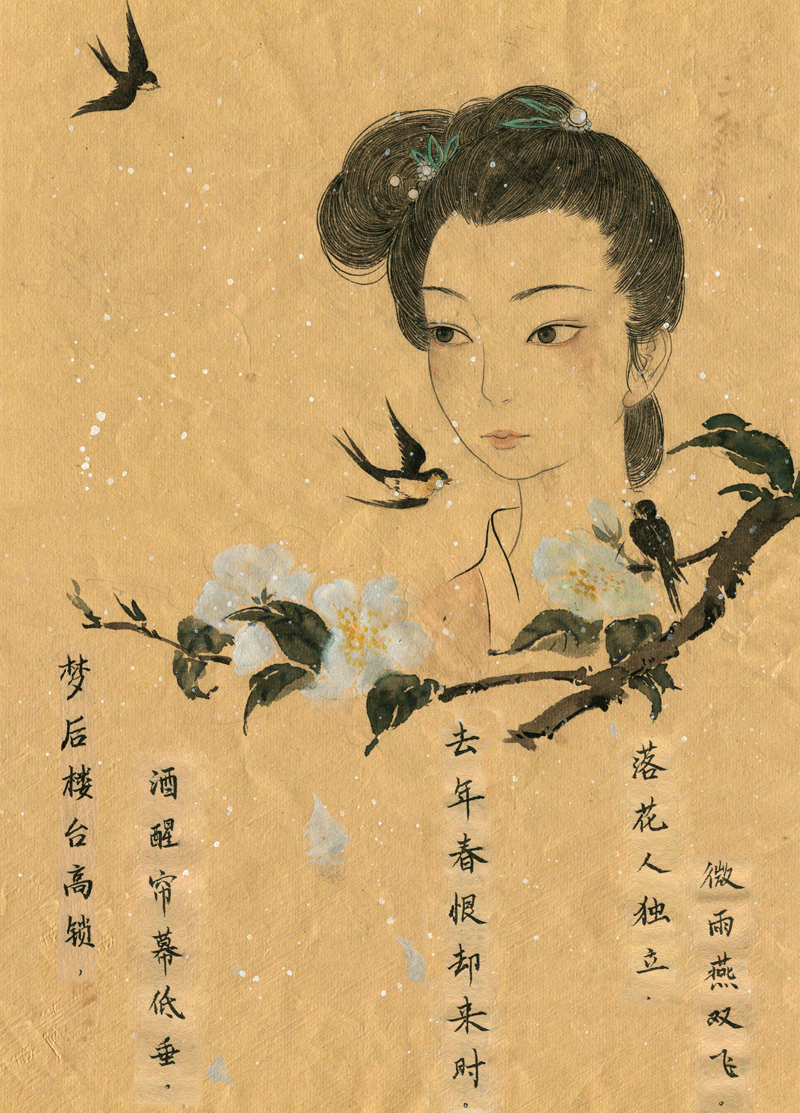 梦后楼台高锁，
酒醒帘幕低垂。
去年春恨却来时。
落花人独立.
微雨燕双飞。